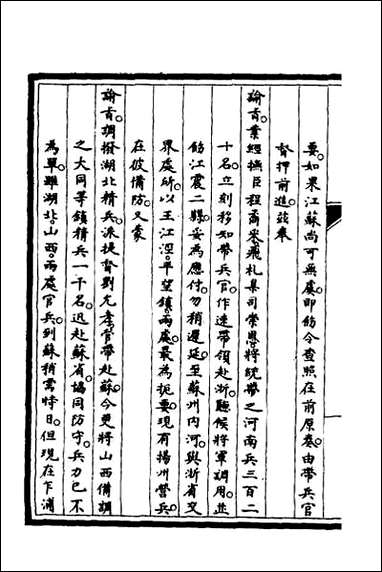 要。如果江蘇尚可無虞。即飭令查照在前原奏。由帶兵官
督押前進。茲奉
諭旨。業經撫臣程矞采飛札臬司崇恩將統帶之河南兵三百二
十名。立刻移知帶兵官。作速帶領赴浙。聽候將軍調用。並
飭江震二縣妥為應付。勿稍遲延。至蘇州內河。與浙省交
界處所。以王江涇。平望鎮。兩處。最為扼要。現有揚州營兵。
在彼備防。又蒙
諭旨。調撥湖北精兵。派提督劉允孝。管帶赴蘇。今更將山西備調
之大同等鎮精兵一千名。迅赴蘇省。協同防守。兵力已不
為單。雖湖北。山西。兩處官兵。到蘇稍需時日。但現在乍浦